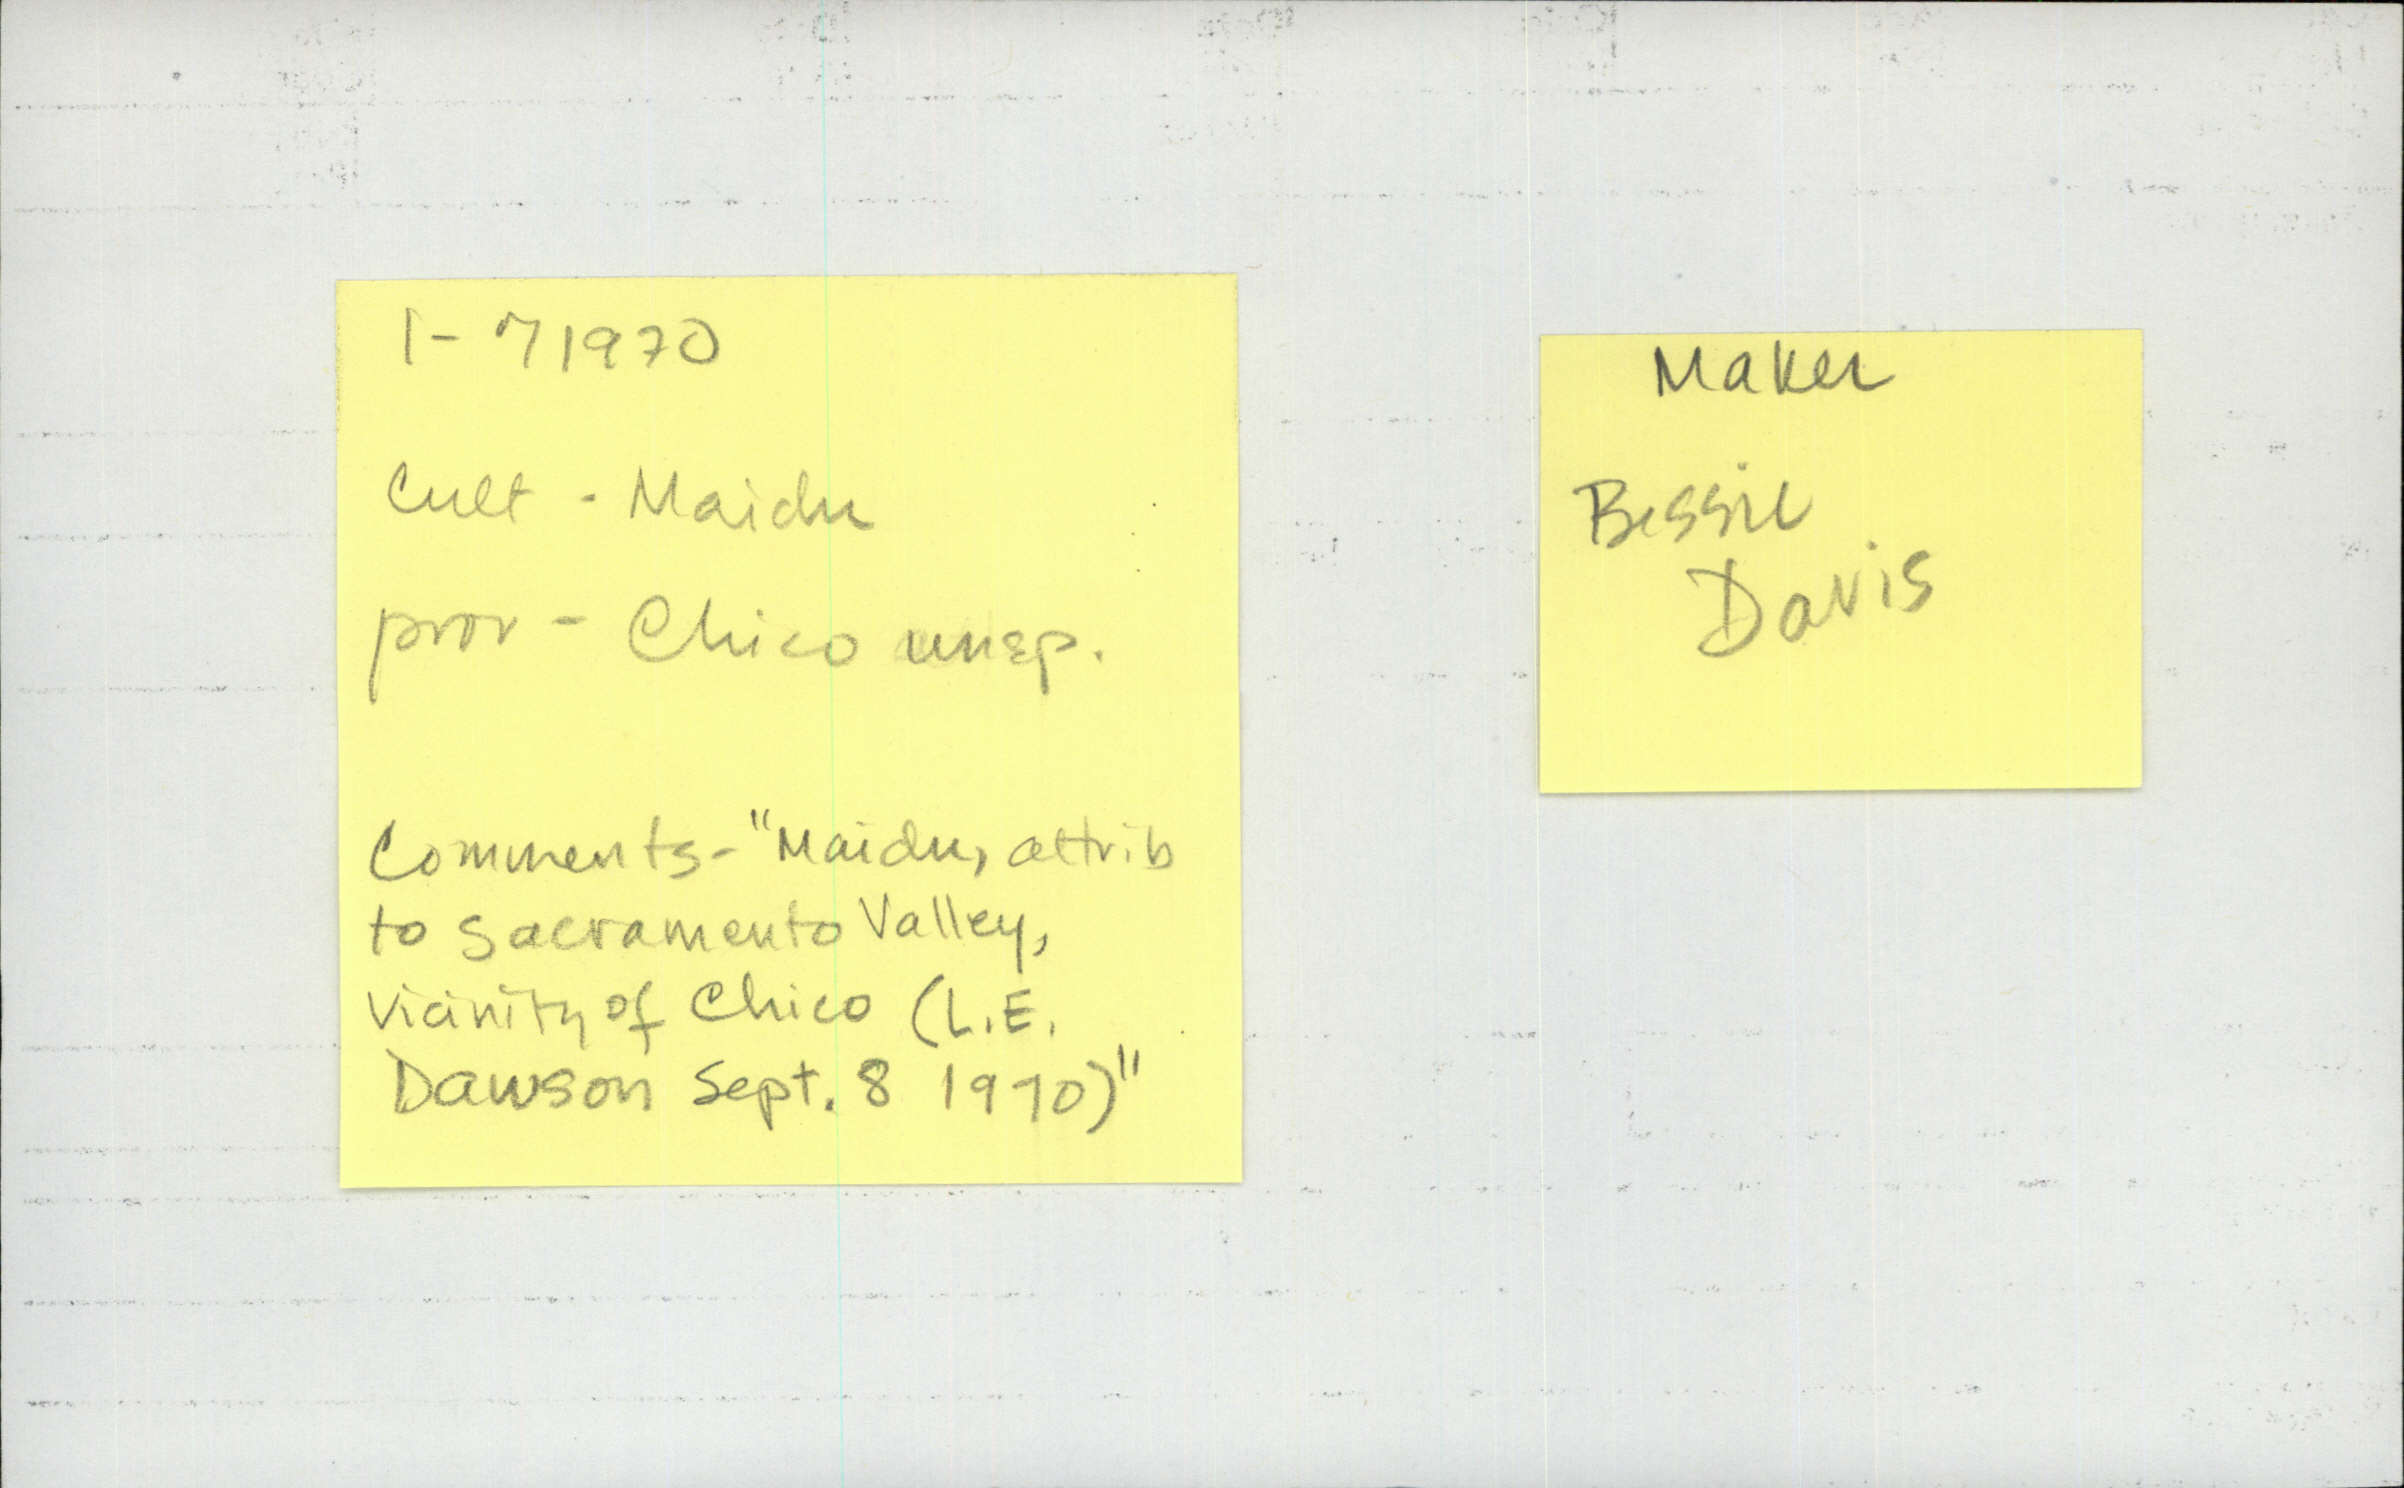 1-71970
Cult - Maidu
prov - Chico unsp.
Comments - "Maidu, attrib
to Sacramento Valley,
vicinity of Chico (L.E.
Dawson Sept. 8 1970)"
Maker
Bessie
Davis